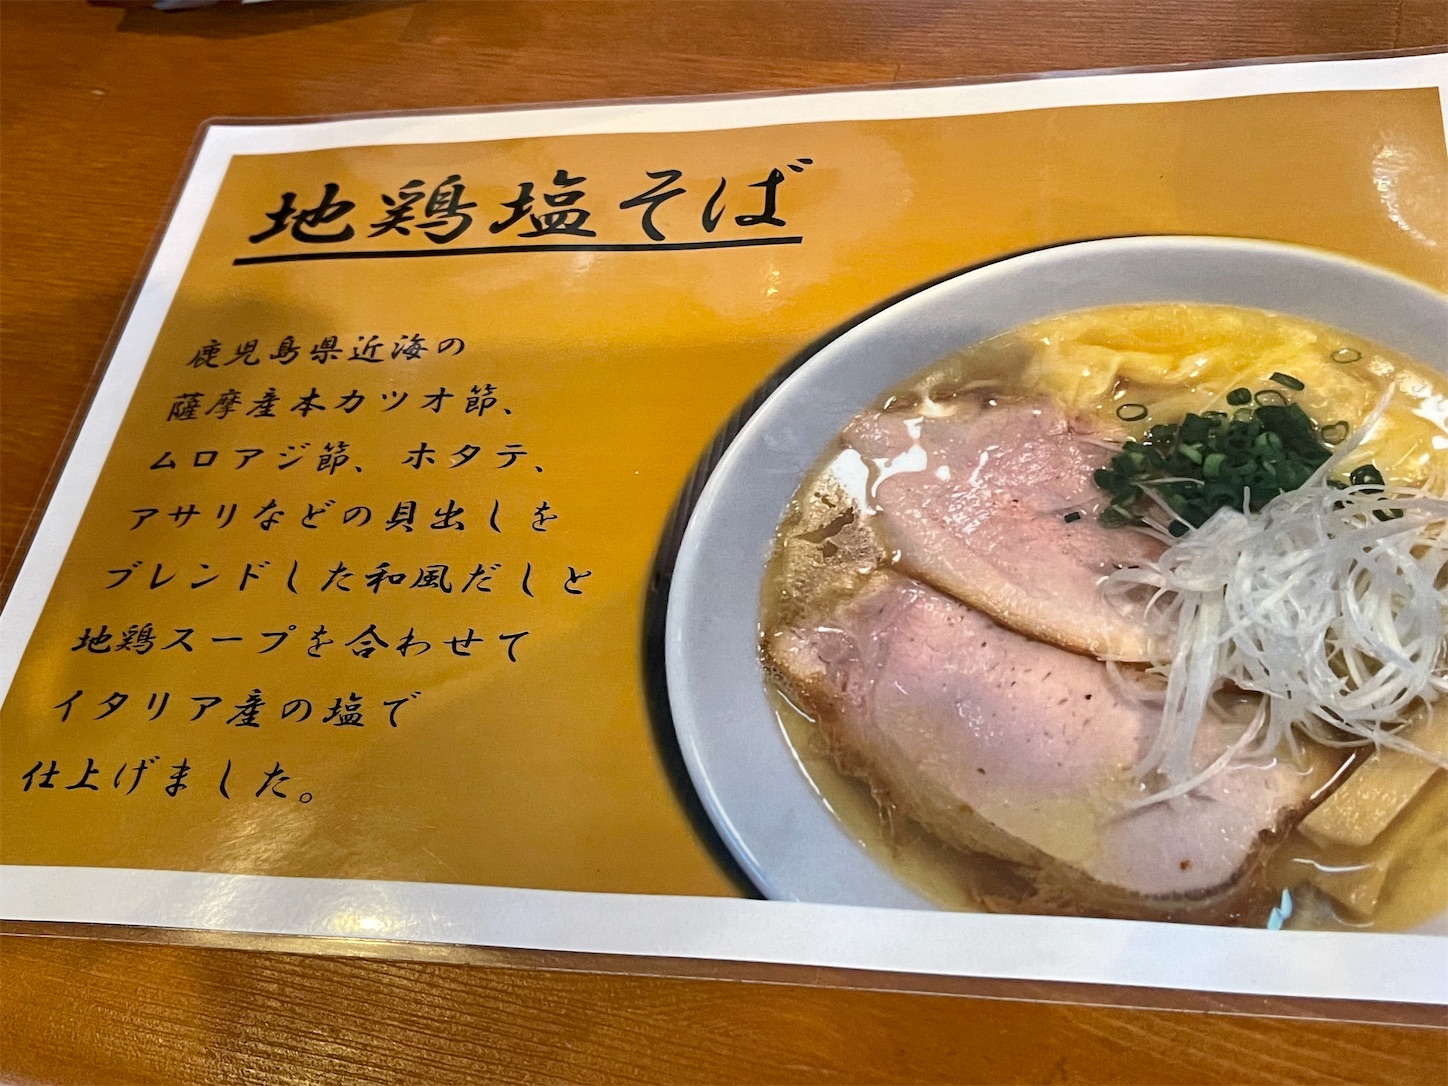 地鶏塩そば
鹿児島県近海の
薩摩産本カツオ節、
ムロアジ節、ホタテ、
アサリなどの貝出しを
ブレンドした和風だしと
地鶏スープを合わせて
イタリア産の塩で
仕上げました。